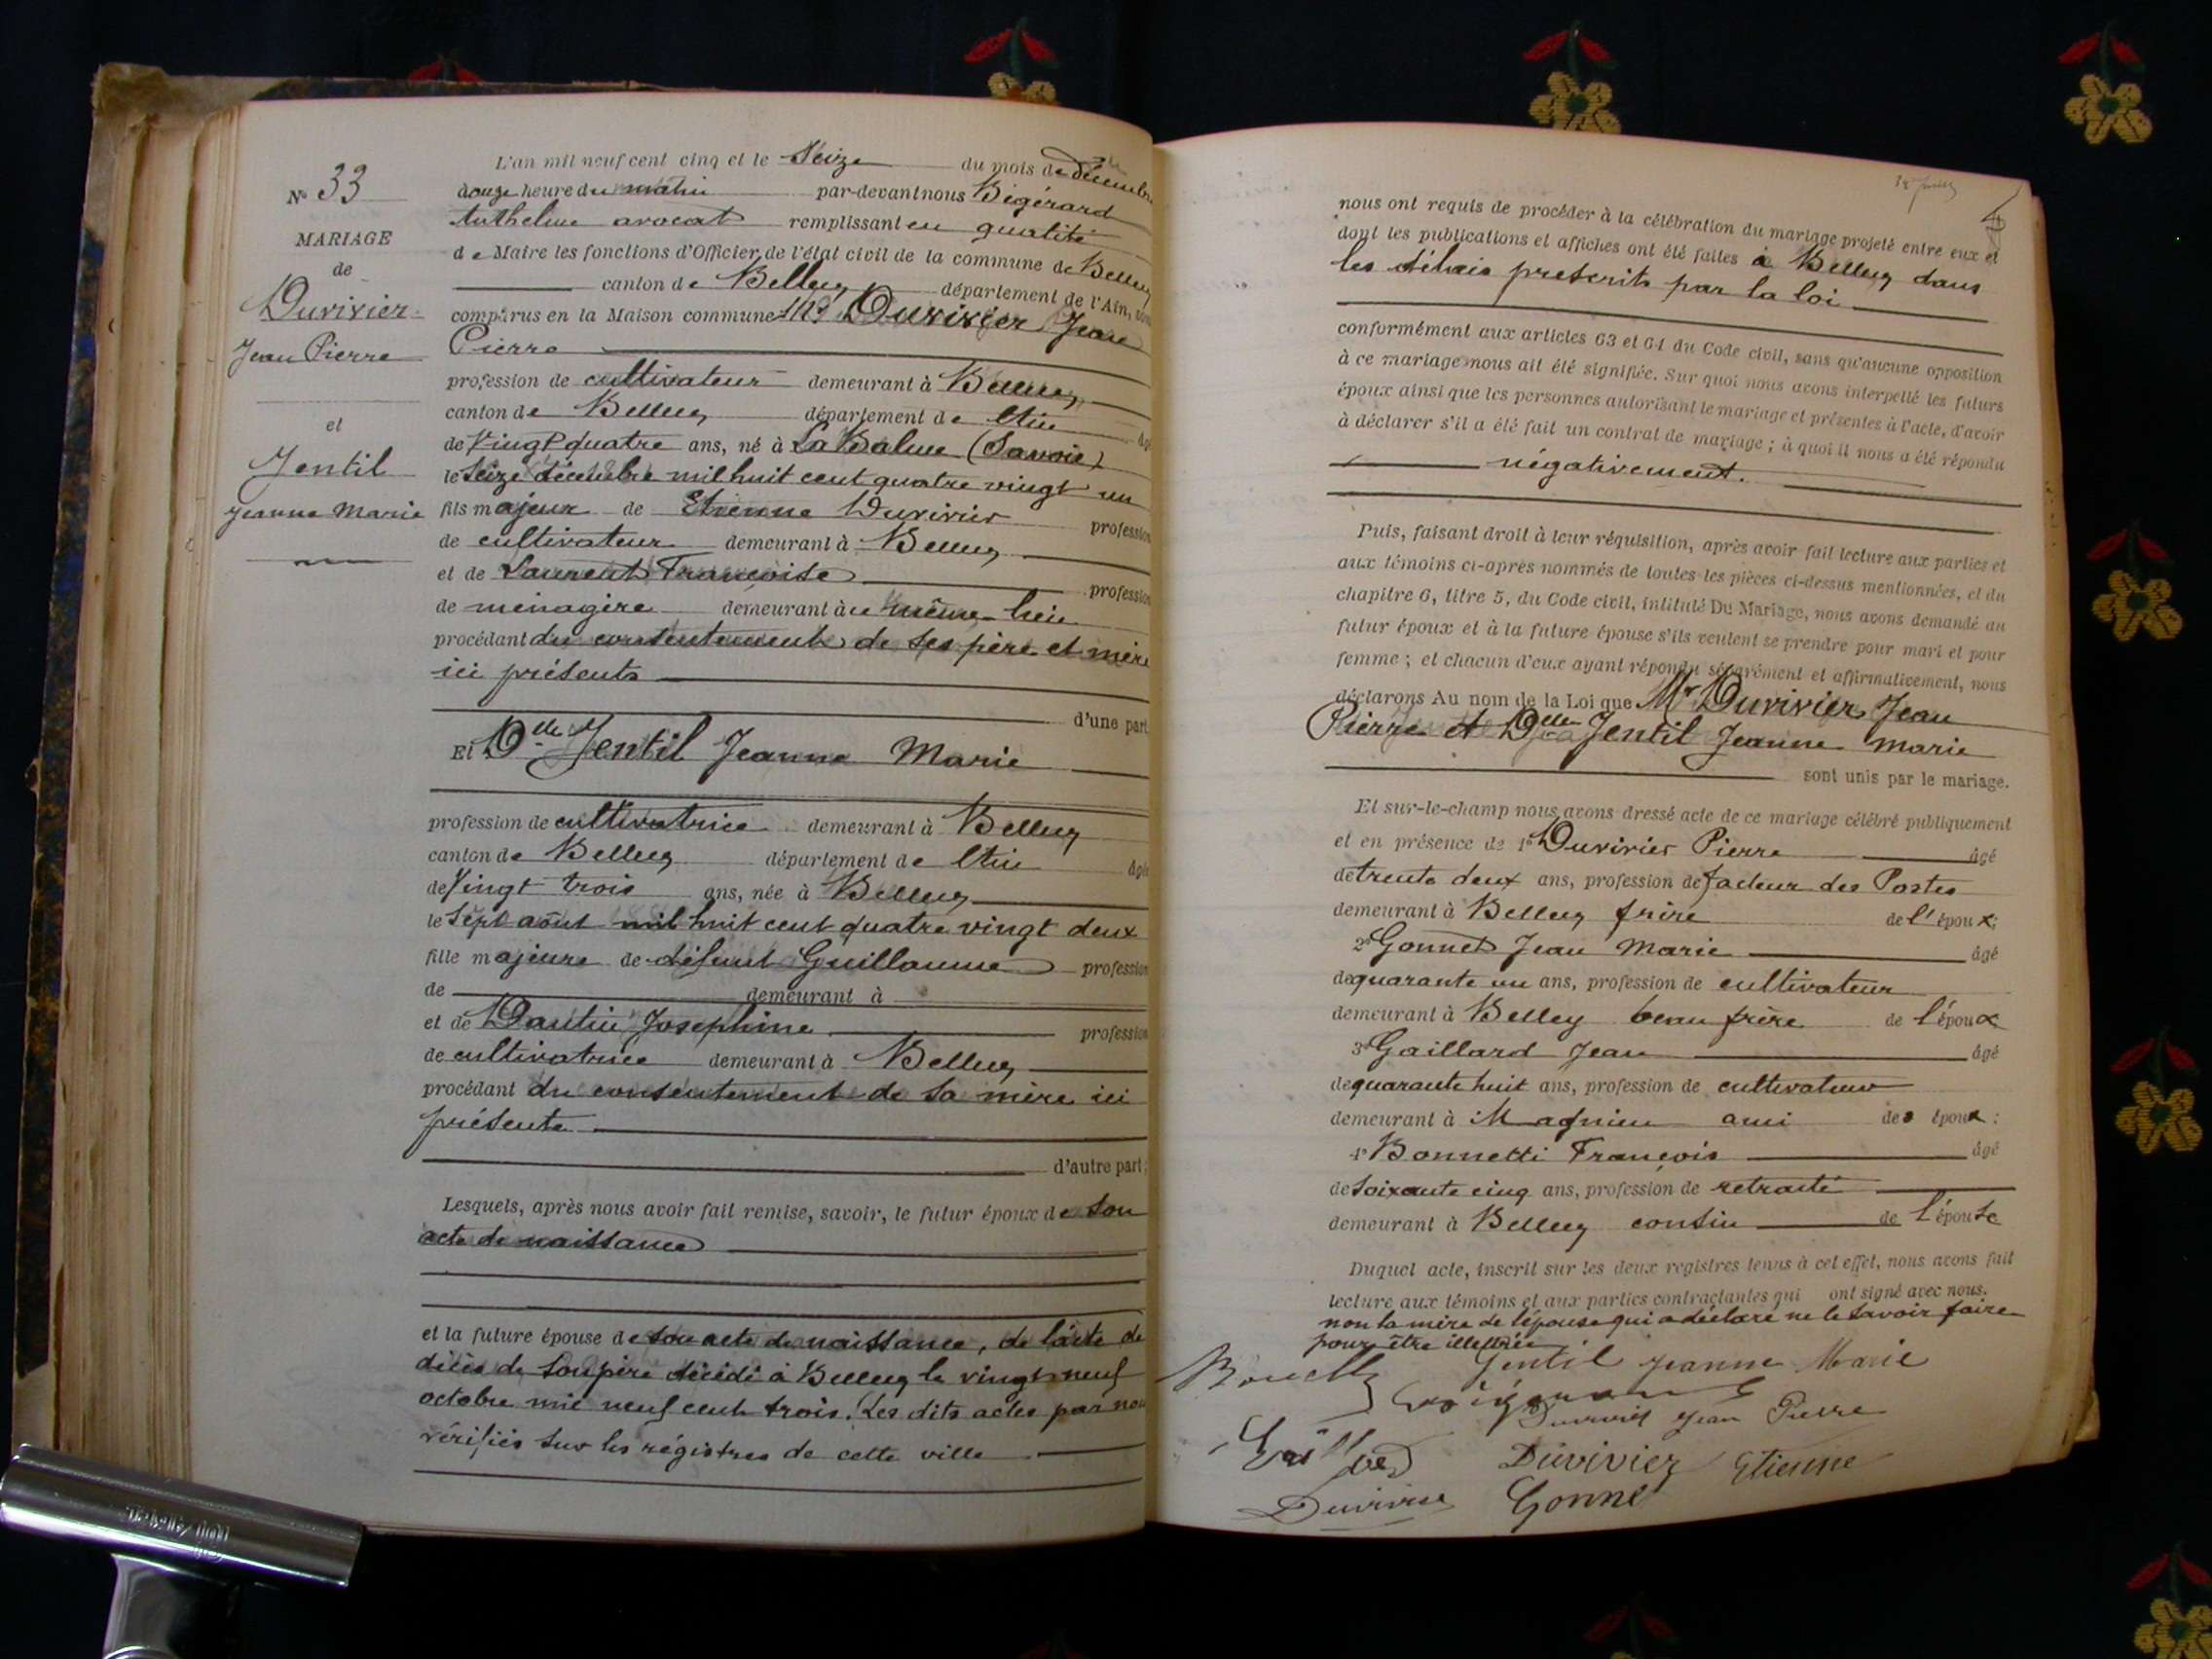 L'an mil neuf cent cinq et le Seize du mois de décembre
par-devant nous Bigérard
heure du matin
Anthelme avocat remplissant en qualité
de Maire les fonctions d'Officier de l'état civil de la commune de Belley
canton de Belley département de l'Ain, sont
comparus en la Maison commune Mr Duvivier Jean
Pierre
profession de cultivateur demeurant à Belley
canton de Belley département de l'Ain âgé
de Vingt quatre ans, né à La Balme (Savoie)
le Seize décembre mil huit cent quatre vingt un
fils majeur de Etienne Duvivier profession
de cultivateur demeurant à Belley
et de Laurent Françoise profession
de ménagère demeurant à même lieu
procédant du consentement de ses père et mère
ici présents
d'une part
Et Dlle Gentil Jeanne Marie
profession de cultivatrice demeurant à Belley
canton de Belley département de l'Ain âgée
de Vingt trois ans, née à Belley
le Sept août mil huit cent quatre vingt deux
fille majeure de défunt Guillaume profession
de demeurant à
et de Dantin Josephine profession
de cultivatrice demeurant à Belley
procédant du consentement de sa mère ici
présente
d'autre part;
Lesquels, après nous avoir fait remise, savoir, le futur époux de son
acte de naissance
et la future épouse de son acte de naissance, de l'acte de
décès de son père décédé à Belley le vingt neuf
octobre mil neuf cent trois. Les dits actes par nous
vérifiés sur les régistres de cette ville
No 33
MARIAGE
de
Duvivier
Jean Pierre
et
Gentil
Jeanne Marie
nous ont requis de procéder à la célébration du mariage projeté entre eux et
dont les publications et affiches ont été faites à Belley dans
les délais prescrits par la loi
conformément aux articles 63 et 64 du Code civil, sans qu'aucune opposition
à ce mariage nous ait été signifiée. Sur quoi nous avons interpellé les futurs
époux ainsi que les personnes autorisant le mariage et présentes à l'acte, d'avoir
à déclarer s'il a été fait un contrat de mariage; à quoi il nous a été répondu
négativement.
Puis, faisant droit à leur réquisition, après avoir fait lecture aux parties et
aux témoins ci-après nommés de toutes les pièces ci-dessus mentionnées, et du
chapitre 6, titre 5, du Code civil, intitulé Du Mariage, nous avons demandé au
futur époux et à la future épouse s'ils veulent se prendre pour mari et pour
femme; et chacun d'eux ayant répondu séparément et affirmativement, nous
déclarons Au nom de la Loi que Mr Duvivier Jean
Pierre et Dlle Gentil Jeanne Marie
sont unis par le mariage.
Et sur-le-champ nous avons dressé acte de ce mariage célébré publiquement
et en présence de 1° Duvivier Pierre âgé
de trente deux ans, profession de facteur des Postes
demeurant à Belley frère de l'époux;
2° Gonnet Jean Marie âgé
de quarante un ans, profession de cultivateur
demeurant à Belley beau frère de l'époux
3° Gaillard Jean âgé
de quarante huit ans, profession de cultivateur
demeurant à Magnieu ami des époux:
4° Bonnetti François âgé
de soixante cinq ans, profession de retraité
demeurant à Belley cousin de l'épouse
Duquel acte, inscrit sur les deux registres tenus à cet effet, nous avons fait
lecture aux témoins et aux parties contractantes qui ont signé avec nous.
non la mère de l'épouse qui a déclaré ne le savoir faire
pour être illettrée
Gentil Jeanne Marie
Duvivier Jean Pierre
Duvivier Etienne
Duvivier Gonnet